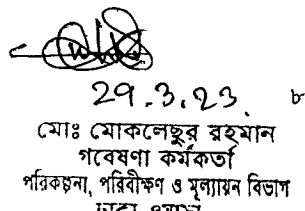 29.3.23. ৮
মোঃ মোকলেছুর রহমান
গবেষণা কর্মকর্তা
পরিকল্পনা, পরিবীক্ষণ ও মূল্যায়ন বিভাগ
ঢাকা ওয়াসা